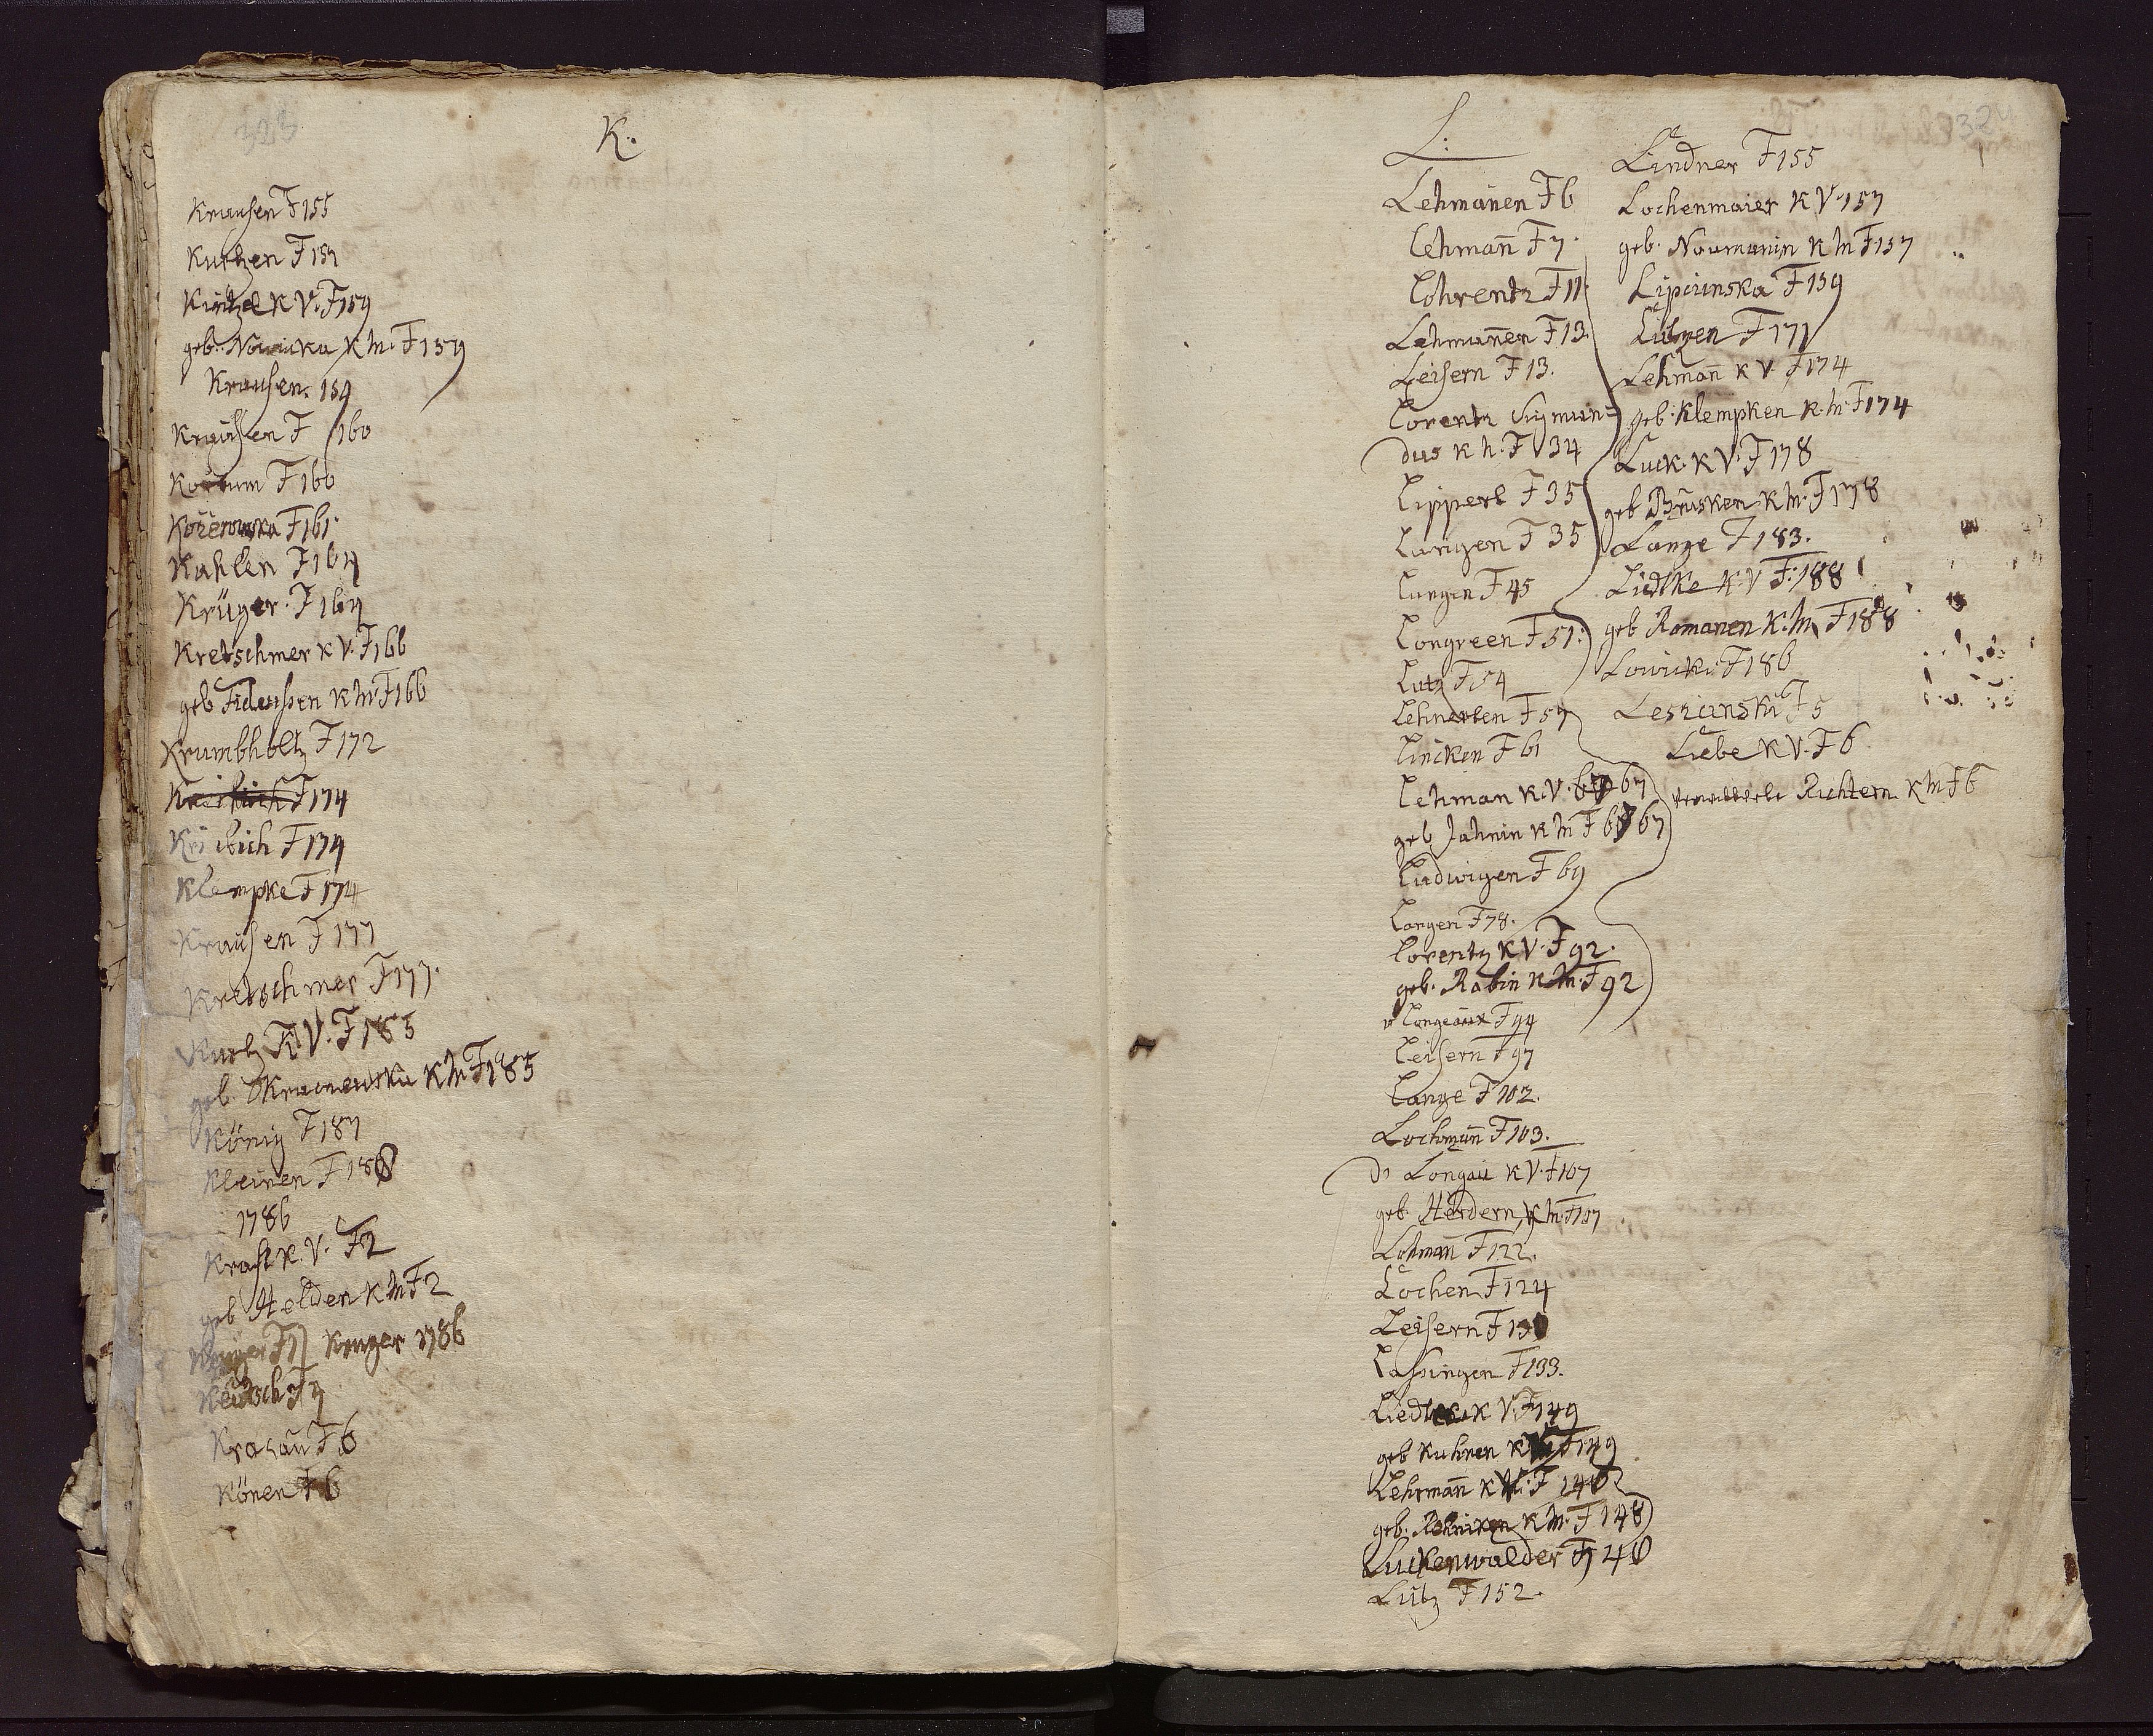 323
K.
Krausen F 155
Kutzen F 157
Kintzel K V. F 159
geb. Nowicka K M. F 159
Krausen. 159
Kraüsen F 160
Kortum F 160
Kozerowska F 161.
Kahlen F 164
Krüger. F 169
Kretschmer K V. F 166
geb K M. F 166
Krumbholtz F 172
F 174
Kri ebich F 174
Klempke F 174
Krausen F 177
Kretschmer F 177.
Kutz K V. F 185
geb. K M F 185
König F 187
Kleinen F 188
1786
Kraft K. V. F 2
geb Helden K M F 2
Krüger F 1 Kruger 1786
F 4
Kracau F 6
Könen F 6
324
L.
Lehmañen F 6
Lehmañ F 7.
Lohrentz F 11.
Lehmañen F 13.
Leisern F 13.
Lorentz Sigmun=
dus K h. F 34
Lippert F 35
Langen F 35
Langen F 45
Longreen F 51.
Lutz F 54
Lehnerten F 57
Lincken F 61
Lehman K. V. 67
geb Jahnin K M F 67
Ludwigen F 69
Langen F 78.
Lorentz K V. F 92.
geb. Rabin K M. F 92
v Longeaux F 94
Leisern F 97
Lange F 102.
Lochmañ F 103.
D Longau K V. F 107
geb. Herdern K M. F 107
Lohmañ F 122.
Lochen F 124
Leisern F 130
Lassingen F 133.
K V. F 149
geb Kuhnen K M F 149
Lehrmañ K V. F 148
geb. K M. F 148
Luckenwalder F 148
Lütz F 152.
Lindner F 155
Lochenmaier K V. 157
geb. Noumanin K M F 157
Lipcinska F 159
Lützen F 171
Lehmañ K V. F 174
geb. Klempken K. M. F 174
Luck. K V. F 178
geb Brüsken K M. F 178
Lange F 183.
Liedtke K V F. 188
geb Romanen K. M. F 188
Lowicki F 186
Leszinski F 5
Liebe K V. F 6
Richtern K M F 6